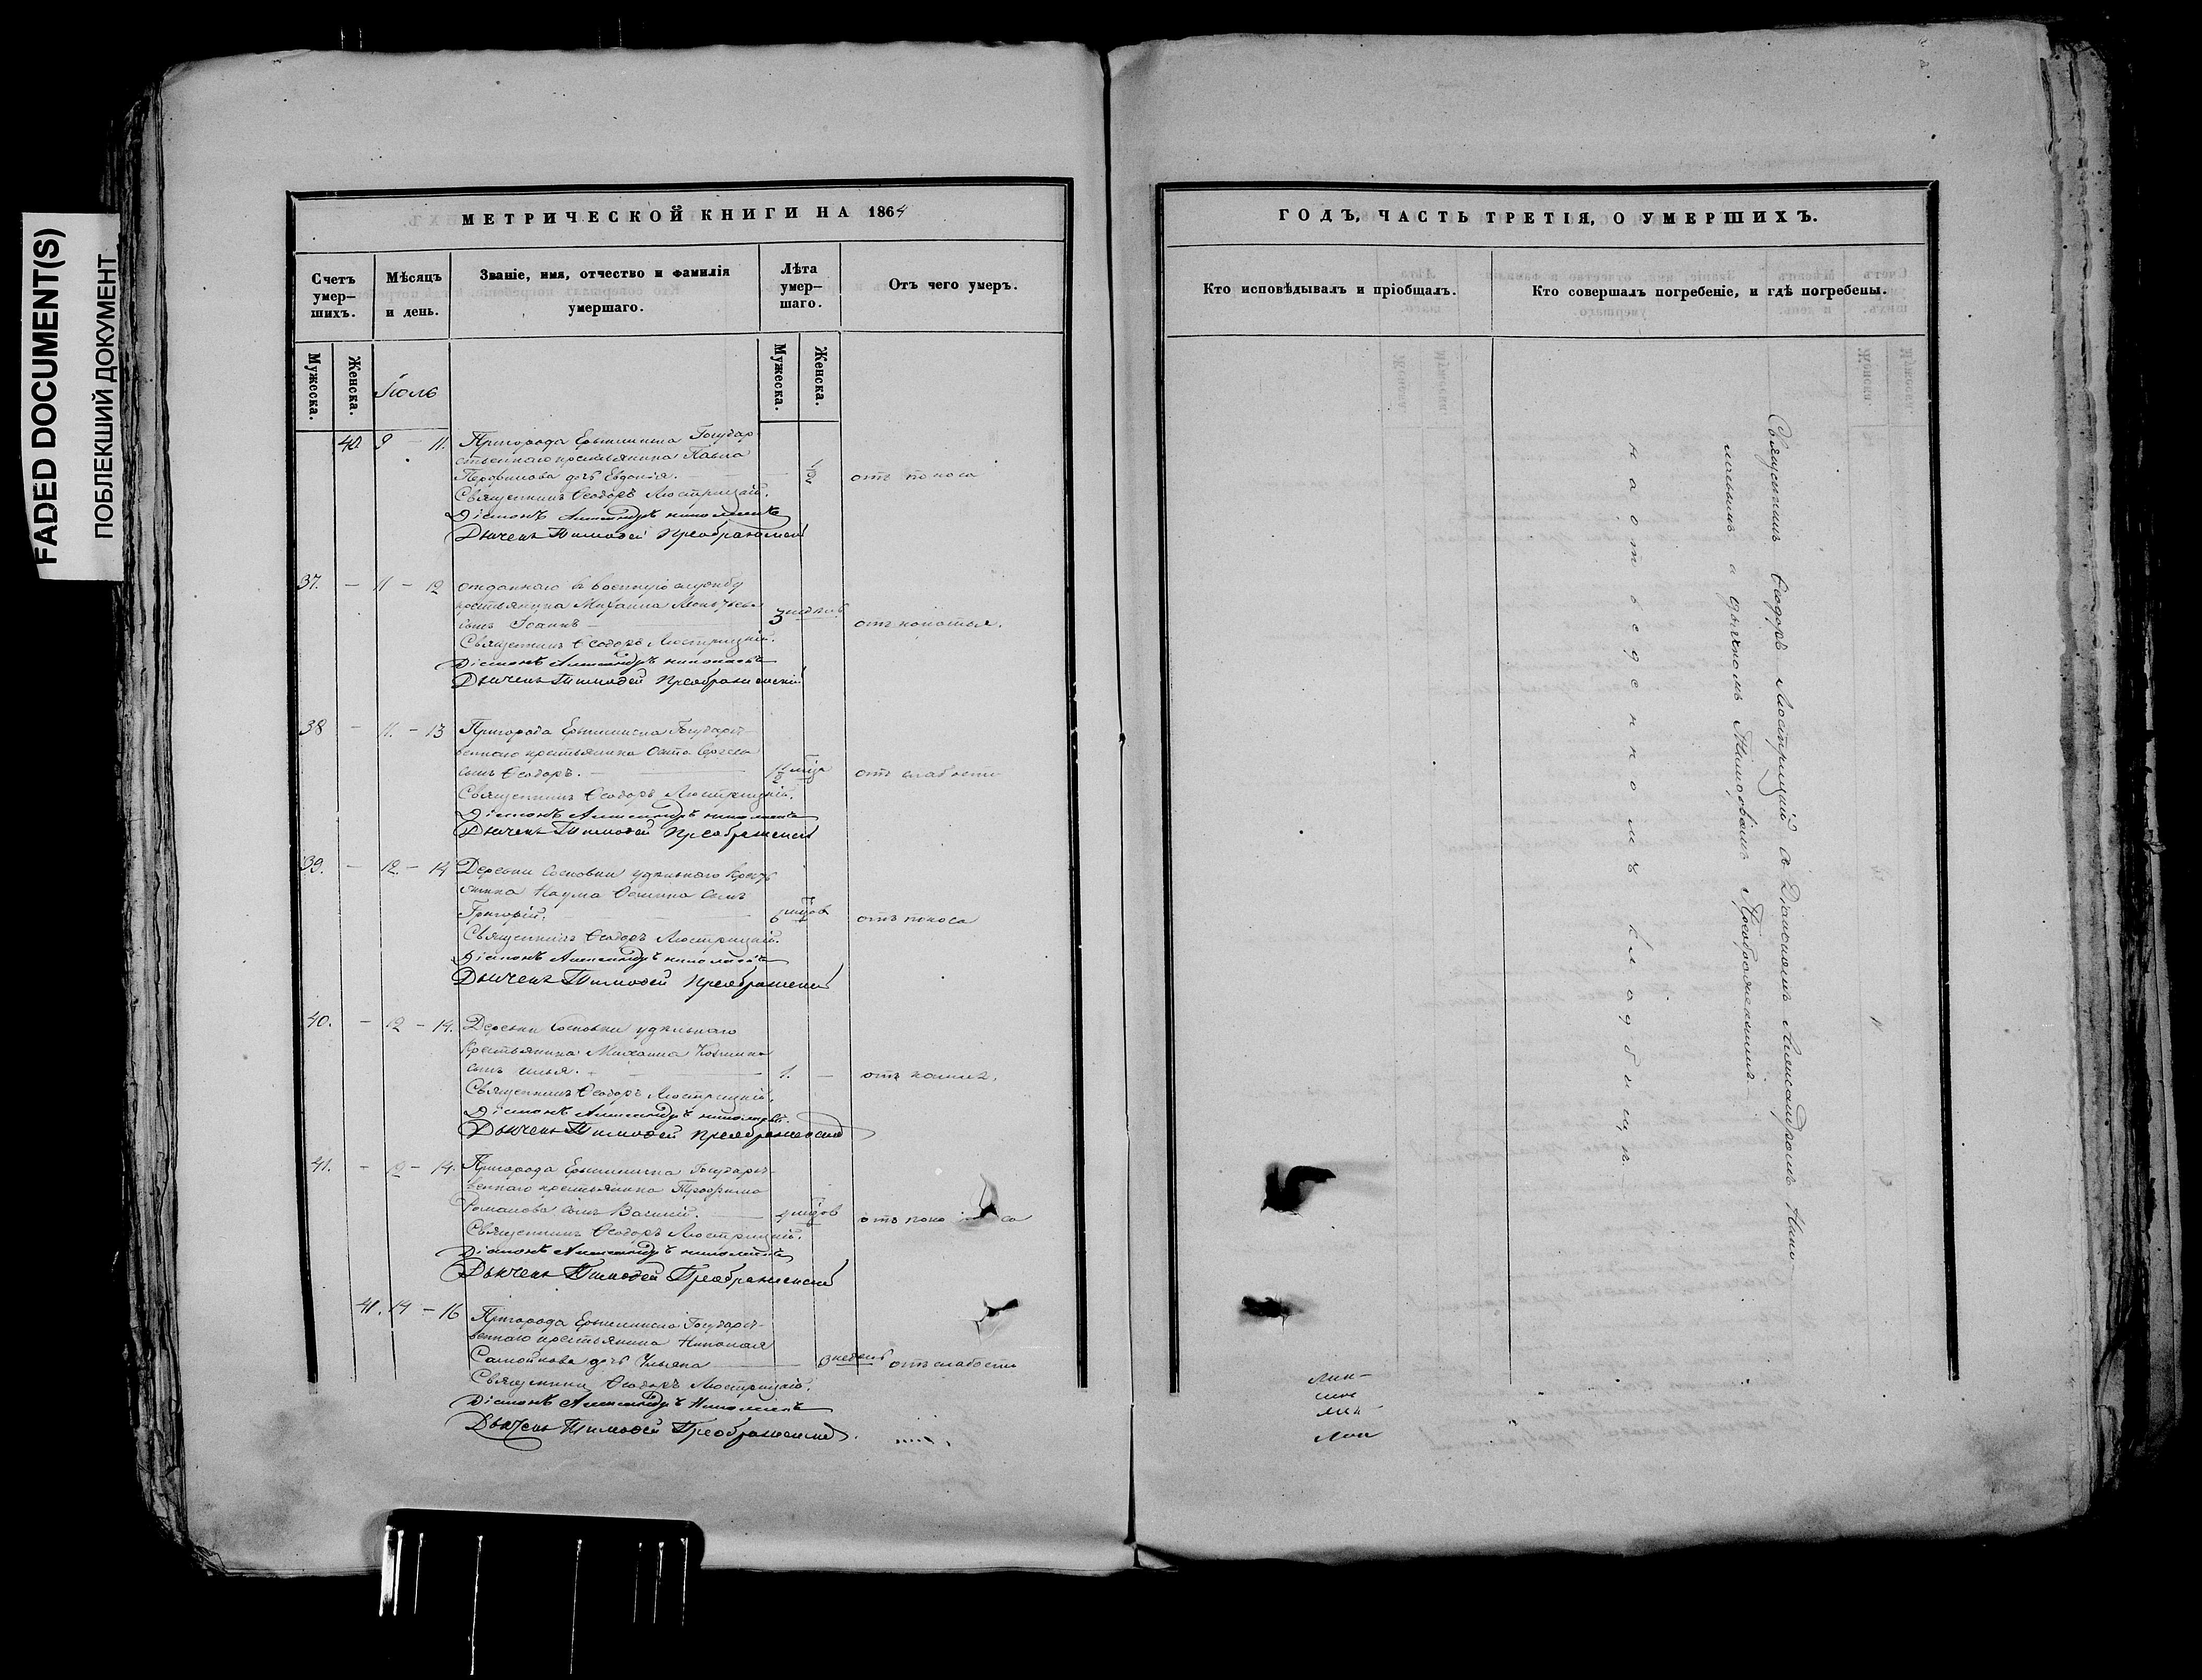 FADED DOCUMENT(S)
ПОБЛЕКШИЙ ДОКУМЕНТ
МЕТРИЧЕСКОЙ КНИГИ НА 1864
Счетъ умер-шихъ.
Мѣсяцъ и день.
Званіе, имя, отчество и фамилія умершаго.
Лѣта умер-шаго.
Отъ чего умеръ.
Мужеска.
Женска.
Мужеска.
Женска.
Іюль
40. 9 - 11. Пригорода Ерыклинска Государ
ственнаго крестьянина Павла
дочь Евдокія. 1/2 отъ поноса
Священникъ Ѳеодоръ Люстрицкій.
Діаконъ Александръ
Дьячекъ Тимоѳей Преображенскій
37. - 11 - 12 отданнаго въ военную службу
крестьянина Михаила
сынъ Іоаннъ - 3 недѣль
Священникъ Ѳеодоръ Люстрицкій.
Діаконъ Александръ
Дьячекъ Тимоѳей Преображенскій
38 - 11. - 13 Пригорода Ерыклинска Государст-
веннаго крестьянина Осипа Сергеева
сынъ Ѳеодоръ. - 1 1/2 мца отъ слабости
Священникъ Ѳеодоръ Люстрицкій.
Діаконъ Александръ
Дьячекъ Тимоѳей Преображенскій
39. - 12. - 14 Деревни Сосновки удѣльнаго Кресть
янина Наума сынъ
Григорій. 6 мцов отъ поноса
Священникъ Ѳеодоръ Люстрицкій.
Діаконъ Александръ
Дьячекъ Тимоѳей Преображенскій
40. - 12 - 14. Деревни Сосновки удѣльнаго
Крестьянина Михаила
сынъ Илья. - 1. - отъ кашля.
Священникъ Ѳеодоръ Люстрицкій.
Діаконъ Александръ
Дьячекъ Тимоѳей Преображенскій
41. - 12 - 14. Пригорода Ерыклинска Государст-
веннаго крестьянина Трофима
Романова сынъ Василій. мцов отъ поноса
Священникъ Ѳеодоръ Люстрицкій.
Діаконъ Александръ
Дьячекъ Тимоѳей Преображенскій
41. 14 - 16 Пригорода Ерыклинска Государст-
веннаго крестьянина Николая
Самойлова дочь Ульяна 3 недель отъ слабости
Священникъ Ѳеодоръ Люстрицкій.
Діаконъ Александръ
Дьячекъ Тимоѳей Преображенскій.
ГОДЪ, ЧАСТЬ ТРЕТІЯ, О УМЕРШИХЪ.
Кто исповѣдывалъ и пріобщалъ.
Кто совершалъ погребеніе, и гдѣ погребены.
Священникъ Ѳеодоръ Люстрицкій съ Діакономъ Александромъ Нико-
лаевымъ и дьячкомъ Тимоѳеемъ Преображенскимъ.
на отведенномъ кладбищѣ.